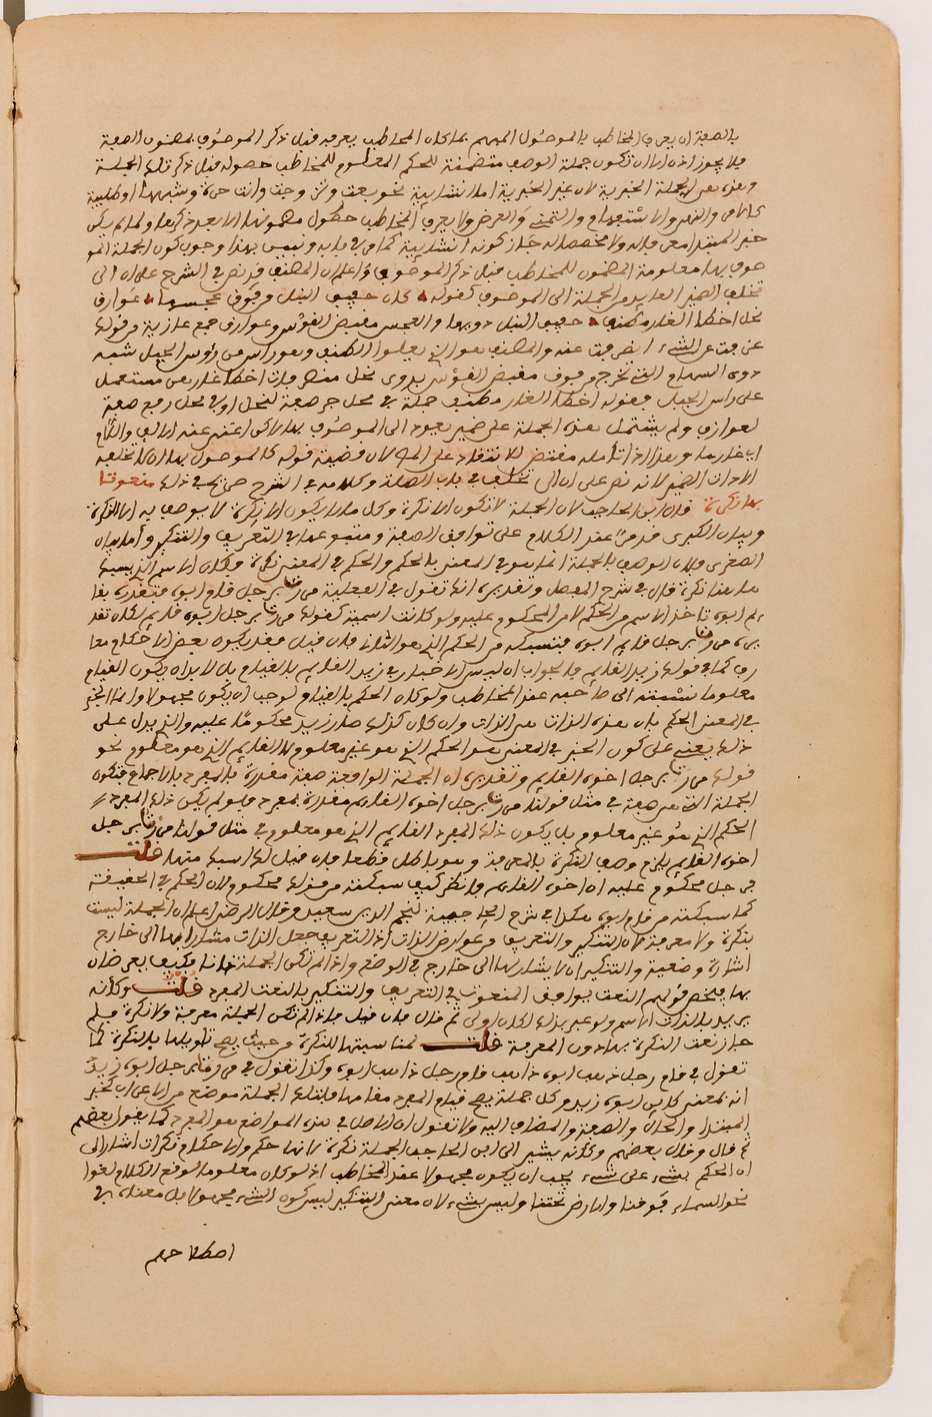 بالصفة ان يعرف المخاطب بالموصوف المبهم بما كان المخاطب يعرفه قبل ذكر الموصوف بمضمون الصفة
فلا يجوز اذن الا ان تكون جملة الوصف متضمنة للحكم المعلوم للمخاطب حصوله قبل ذكر تلك الجملة
وهذه هي الجملة الخبرية لان غير الخبرية اما انشائية نحو بعت وطلقت وانت حرة وشبهها او طلبية
كالامر والنهي والاستفهام والتمني والعرض ولا يعرف المخاطب حصول مضمونها الا بعد ذكرها ولما لم يكن
خبر المبتدا معرفا له ولا مخصصا له جاز كونه انشائية كما مر في بابه وتبين بهذا وجوب كون الجملة المو
صوف بها معلومة المضمون للمخاطب قبل ذكر الموصوف واعلم ان المصنف قد نص في الشرح على ان
تخلف الضمير العايد من الجملة الى الموصوف كقوله كان حفيف النبل من فوق عجسها عوازف
نحل اخطا الغار مطنف حفيف النبل دويها والعجس مقبض القوس وعوازف جمع عازفة من قولك
عزفت عن الشيء انصرفت عنه والمطنف هو الذي يعلو الطنف وهو راس من رؤس الجبل شبه
دوي السهام التي تخرج من فوق مقبض القوس بدوي نحل منصرفات اخطا غارهن مستعمل
على راس الجبل فقوله اخطا الغار مطنف جملة في محل جر صفة لنحل او في محل رفع صفة
لعوازف ولم يشتمل هذه الجملة على ضمير يعود الى الموصوف بها لكن اغنى عنه الالف واللام
اي غارها وهذا اذا تأمله مقتض للانتقاد على المص لان قضية قوله كالموصول بها ان لا تخلفه
الاداة الضمير لانه نص على ان ال تخلف في باب الصلة وكلامه في الشرح صريح في ذلك منعوتا
بها نكرة قال ابن الحاجب لان الجملة لا تكون الا نكرة وكل ما لا يكون الا نكرة لا يوصف به الا النكرة
وبيان الكبرى قد مر عند الكلام على توافق الصفة ومتبوعها في التعريف والتنكير واما بيان
الصغرى فلان الوصف بالجملة انما هو في المعنى بالحكم والحكم في المعنى نكرة فيكون الاسم الذي يسبك
معها نكرة قال في شرح المفصل وتقديره انك تقول في الفعلية مررت برجل قام ابوه فتقديره بقا
يم ابوه تاخذ الاسم من الحكم لا من المحكوم عليه ولو كانت اسمية كقولك مررت برجل ابوه قايم لكان تقد
يره مررت برجل قايم ابوه فتسبكه من الحكم الذي هو الثاني فان قيل فقد يكون بعض الاحكام معا
رف كما في قولك زيد القايم فالجواب انه ليس الاخبار في زيد القايم بالقيام بل لا بد ان يكون القيام
معلوما نسبته الى صاحبه عند المخاطب ولو كان الحكم بالقيام لوجب ان يكون مجهولا وانما الخبر
في المعنى الحكم بان هذه الذات هي الذات وان كان كذلك صار زيد محكوما عليه والذي يدل على
ذلك يعني على كون الخبر في المعنى هو الحكم الذي هو غير معلوم لا القايم الذي هو معلوم نحو
قولك مررت برجل اخوه القايم وتقديره ان الجملة الواقعة صفة مقدرة بالمفرد بالاجماع فتكون
الجملة التي هي صفة في مثل قولك مررت برجل اخوه القايم مقدرة بمفرد فلو لم يكن ذلك المفرد
الحكم الذي هو غير معلوم بل يكون ذلك المفرد القايم الذي هو معلوم في مثل قولك مررت برجل
اخوه القايم يلزم وصف النكرة بالمعرفة وهو باطل قطعا فان قيل لك اسبك منها قلت
مررت برجل محكوم عليه ان اخوه القايم فانظر كيف سبكته من قولك محكوم لان الحكم في الحقيقة
كما سبكته من قام ابوه هكذا في شرح الحاجبية لنجم الدين سعيد وقال الرضي اعلم ان الجملة ليست
بنكرة ولا معرفة لان التنكير والتعريف من عوارض الذات اذ التعريف جعل الذات مشارا بها الى خارج
اشارة وضعية والتنكير ان لا يشار بها الى خارج في الوضع واذا لم تكن الجملة ذاتا فكيف يعرضان
بها فيخص قولهم النعت يوافق المنعوت في التعريف والتنكير بالنعت المفرد قلت وكانه
يريد بالذات الاسم ولو عبر بذلك لكان اولى ثم قال فان قيل فاذا لم تكن الجملة معرفة ولا نكرة فلم
جاز نعت النكرة بها دون المعرفة قلت لمناسبتها للنكرة من حيث يصح تاويلها بالنكرة كما
تقول في قام رجل ذهب ابوه ذاهب قام رجل ذاهب ابوه وكذا تقول في مررت برجل ابوه زيد
انه بمعنى كاين ابوه زيد وكل جملة يصح قيام المفرد مقامها فلتلك الجملة موضع من الاعراب كخبر
المبتدا والحال والصفة والمضاف اليه ولا تقول ان الاصل في هذه المواضع هو المفرد كما يقول بعضهم
ثم قال وقال بعضهم وكانه يشير الى ابن الحاجب الجملة نكرة لانها حكم والاحكام نكرات اشارة الى
ان الحكم بشيء على شيء يجب ان يكون مجهولا عند المخاطب اذ لو كان معلوما لوقع الكلام لغوا
نحو السماء فوقنا والارض تحتنا وليس بشيء لان معنى التنكير ليس كون الشيء مجهولا بل معناه في
اصطلاحهم